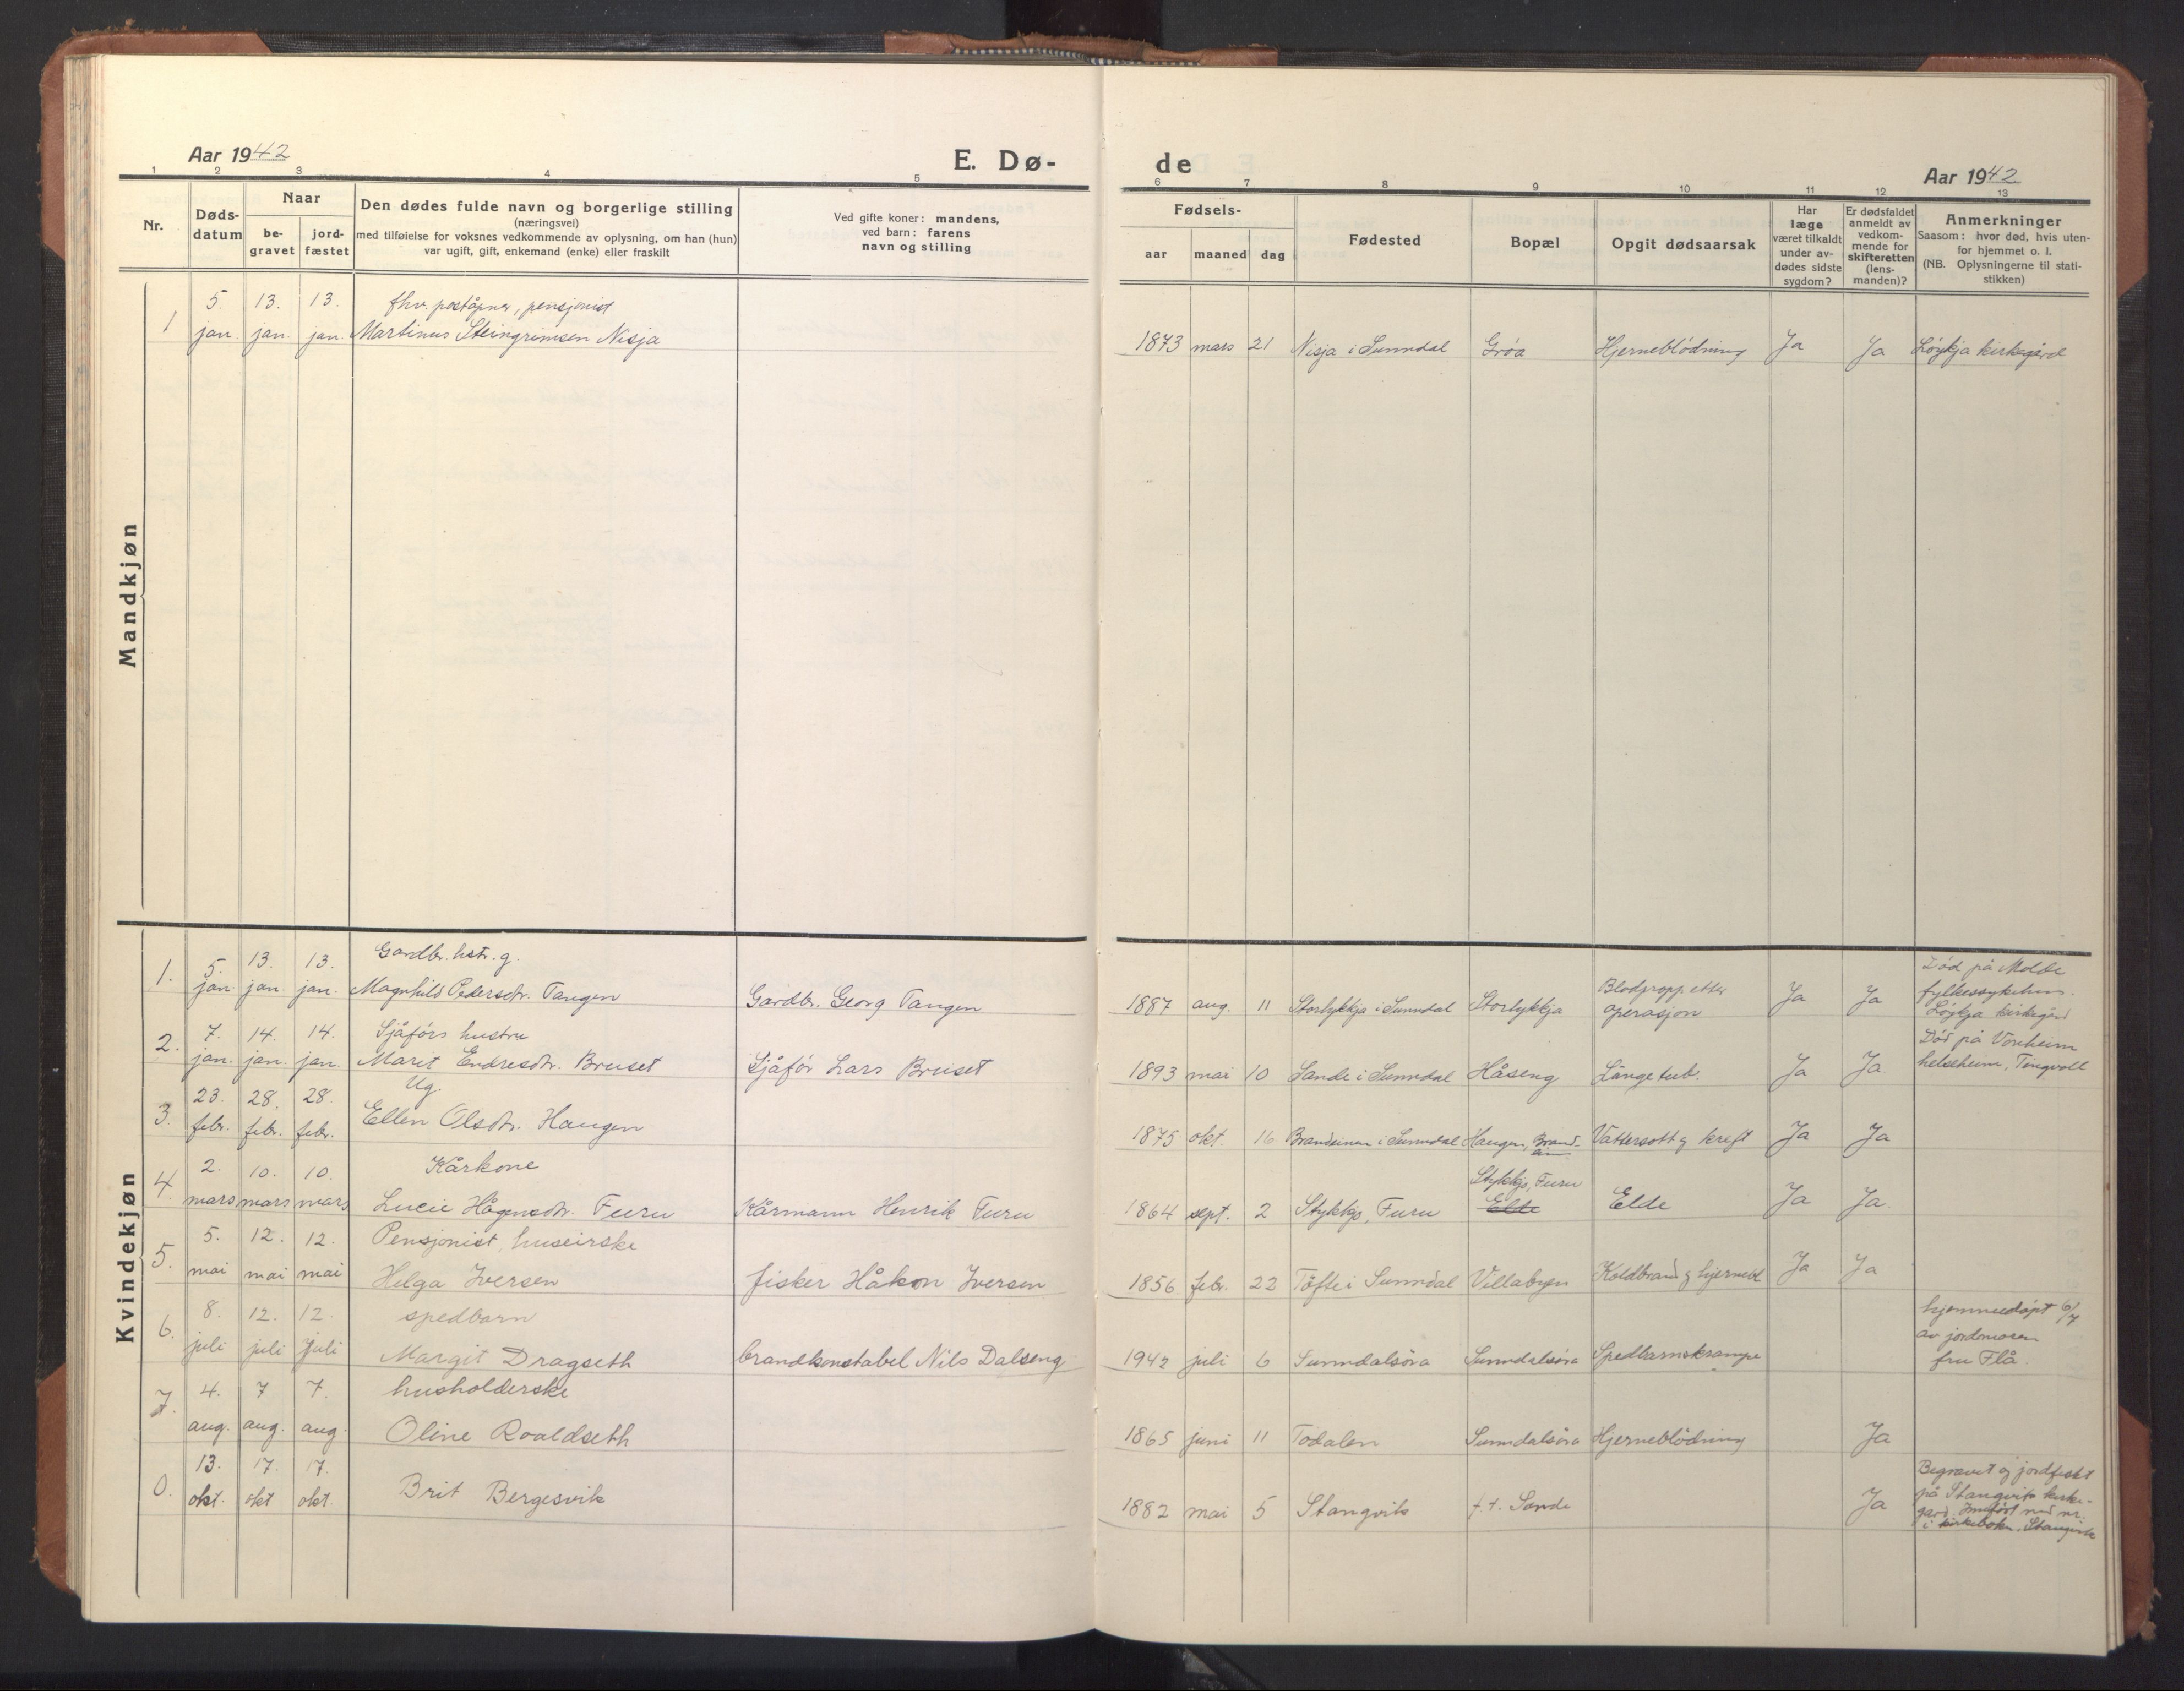 Aar 1942
E. Dø-
1 2 3 4 5
Nr.
Døds-
datum
Naar
be-
gravet
jord-
fæstet
Den dødes fulde navn og borgerlige stilling
(næringsvei)
med tilføielse for voksnes vedkommende av oplysning, om han (hun)
var ugift, gift, enkemand (enke) eller fraskilt
Ved gifte koner: mandens,
ved barn: farens
navn og stilling
Mandkjøn
5. 13. 13. fhv. poståpner, pensjonist
1 jan. jan. jan. Martinus Steingrimsen Nisja
Kvindekjøn
5. 13. 13. Gardbr. hstr. g.
1. jan. jan. jan. Magnhild Pedersdtr. Tangen Gardbr. Georg Tangen
7. 14. 14. Sjåførs hustru
2. jan. jan. jan. Marit Endresdtr. Bruset Sjåfør Lars Bruset
23. 28. 28. Ug.
3. febr. febr. febr. Ellen Olsdtr. Haugen
2. 10. 10. Kårkone
4. mars mars mars Lucie Hågensdtr. Furu Kårmann Henrik Furu
5. 12. 12. Pensjonist, huseirske
5. mai mai mai Helga Iversen fisker Håkon Iversen
8. 12. 12. spedbarn
6. juli juli juli Margit Dragseth brandkonstabel Nils Dalseng
4. 7 7. husholderske
7. aug. aug. aug. Oline Roaldseth
13. 17. 17.
0. okt. okt okt. Brit Bergesvik
de
Aar 1942
6 7 8 9 10 11 12 13
Fødsels-
aar maaned dag
Fødested
Bopæl
Opgit dødsaarsak
Har
læge
været tilkaldt
under av-
dødes sidste
sygdom?
Er dødsfaldet
anmeldt av
vedkom-
mende for
skifteretten
(lens-
manden)?
Anmerkninger
Saasom: hvor død, hvis uten-
for hjemmet o. l.
(NB. Oplysningerne til stati-
stikken)
1873 mars 21 Nisja i Sunndal Grøa Hjerneblödning Ja Ja Löykja kirkegård
1887 aug. 11 Storlykkja i Sunndal Storlykkja Blodpropp etter
operasjon Ja Ja Död på Molde
fylkessykehus.
Löykja kirkegård
1893 mai 10 Sande i Sunndal Håseng Lungetub. Ja Ja Död på Vonheim
helseheim, Tingvoll
1875 okt. 16 i Sunndal Haugen, Vattersott og kreft Ja Ja
1864 sept. 2 Stykkjs, Furu Stykkjs, Furu
Elde Elde Ja Ja.
1856 febr. 22 Töfte i Sunndal Villabyen Koldbrand og hjernebl Ja Ja
1942 juli 6 Sunndalsöra Sunndalsöra Spedbarnskrampe hjemmedöpt 6/7
av jordmoren
fru Flå.
1865 juni 11 Todalen Sunndalsöra Hjerneblödning Ja
1882 mai 5 Stangvik f. t. Sande Ja Begravet og jordfestet
på Stangvik kirke-
gard. Innfört med nr.
i kirkeboken, Stangvik